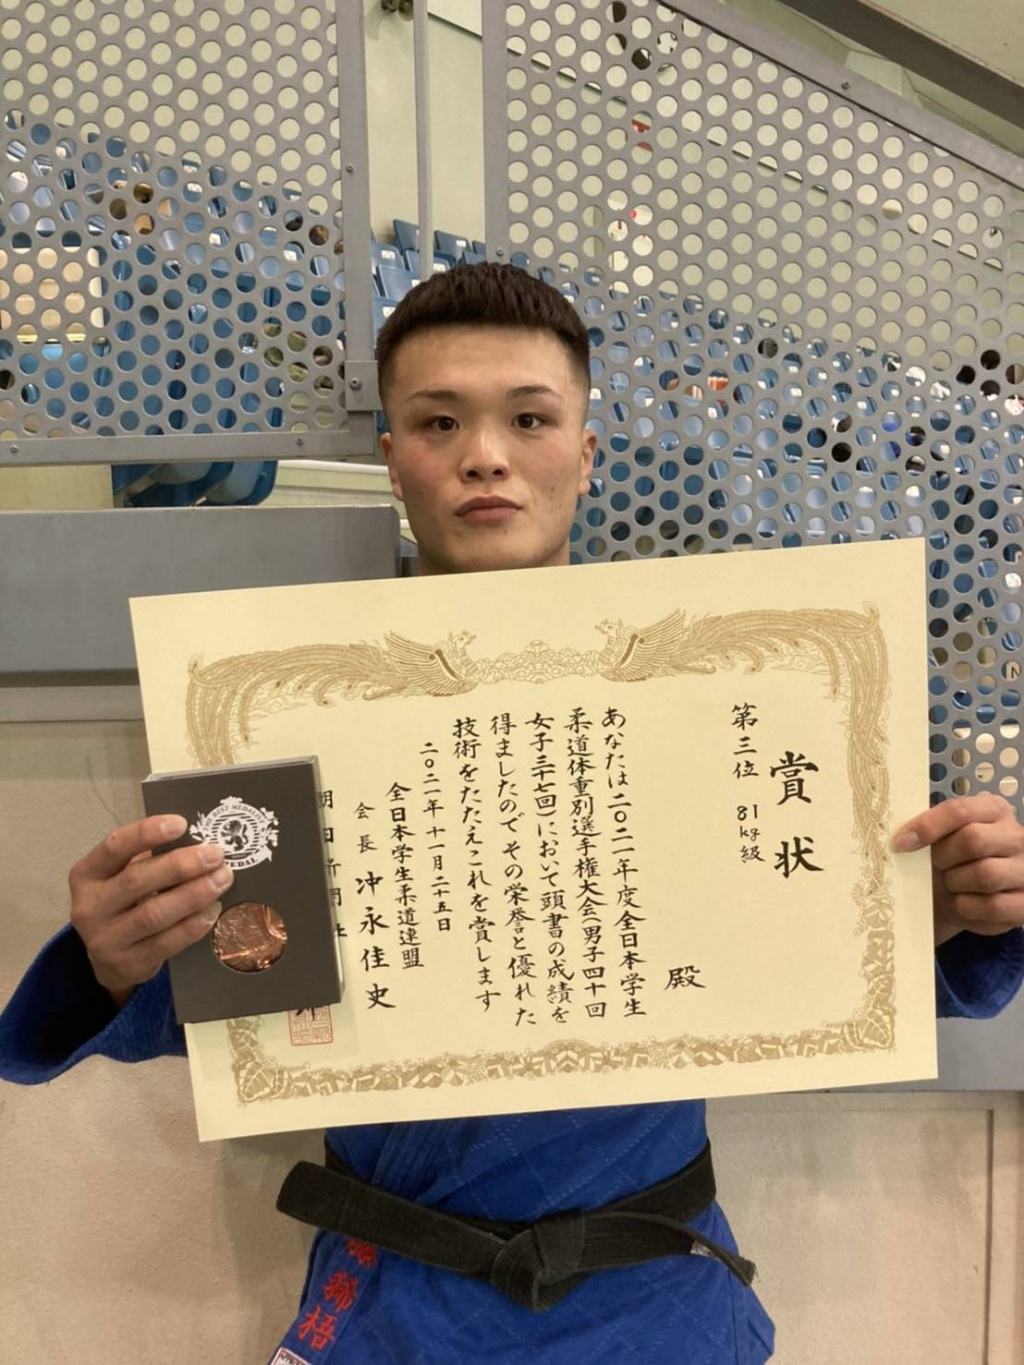 賞状
第三位 81kg級
殿
あなたは二〇二一年度全日本学生
柔道体重別選手権大会(男子四十回
女子三十七回)において頭書の成績を
得ましたのでその栄誉と優れた
技術をたたえこれを賞します
二〇二一年十一月二十五日
全日本学生柔道連盟
会長 冲永佳史
MEDAL
稀梧